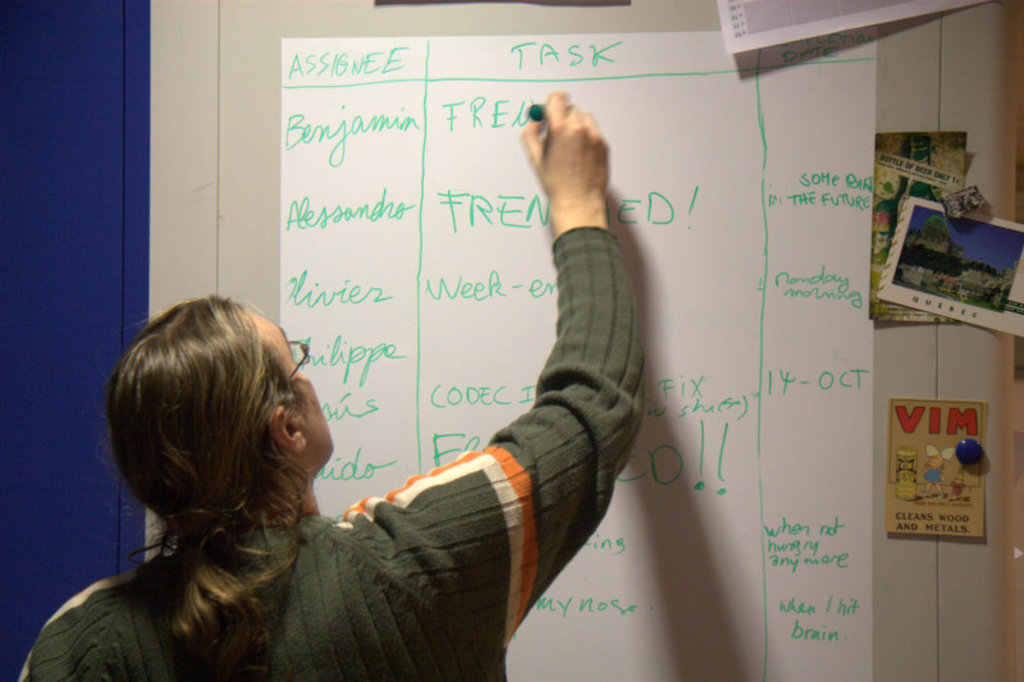 ASSIGNEE TASK COMPLETION DATE
Benjamin FREN
Alessandro FREN ED! SOME POINT
IN THE FUTURE
Olivier Week-en Monday
morning
Philippe
CODEC I FIX 14-OCT
sús
ido ED!!
when not
hungry
anymore
my nose. when I hit
brain.
BOTTLE OF BEER ONLY
QUÉBEC
VIM
CLEANS WOOD
AND METALS.